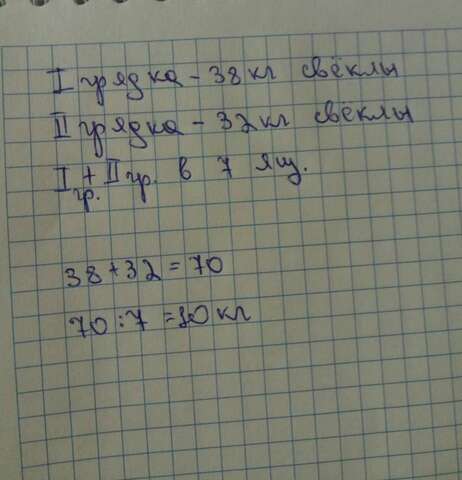 I грядка - 38 кг свёклы
II грядка - 32 кг свёклы
I гр. + II гр. в 7 ящ.
38 + 32 = 70
70 : 7 = 10 кг